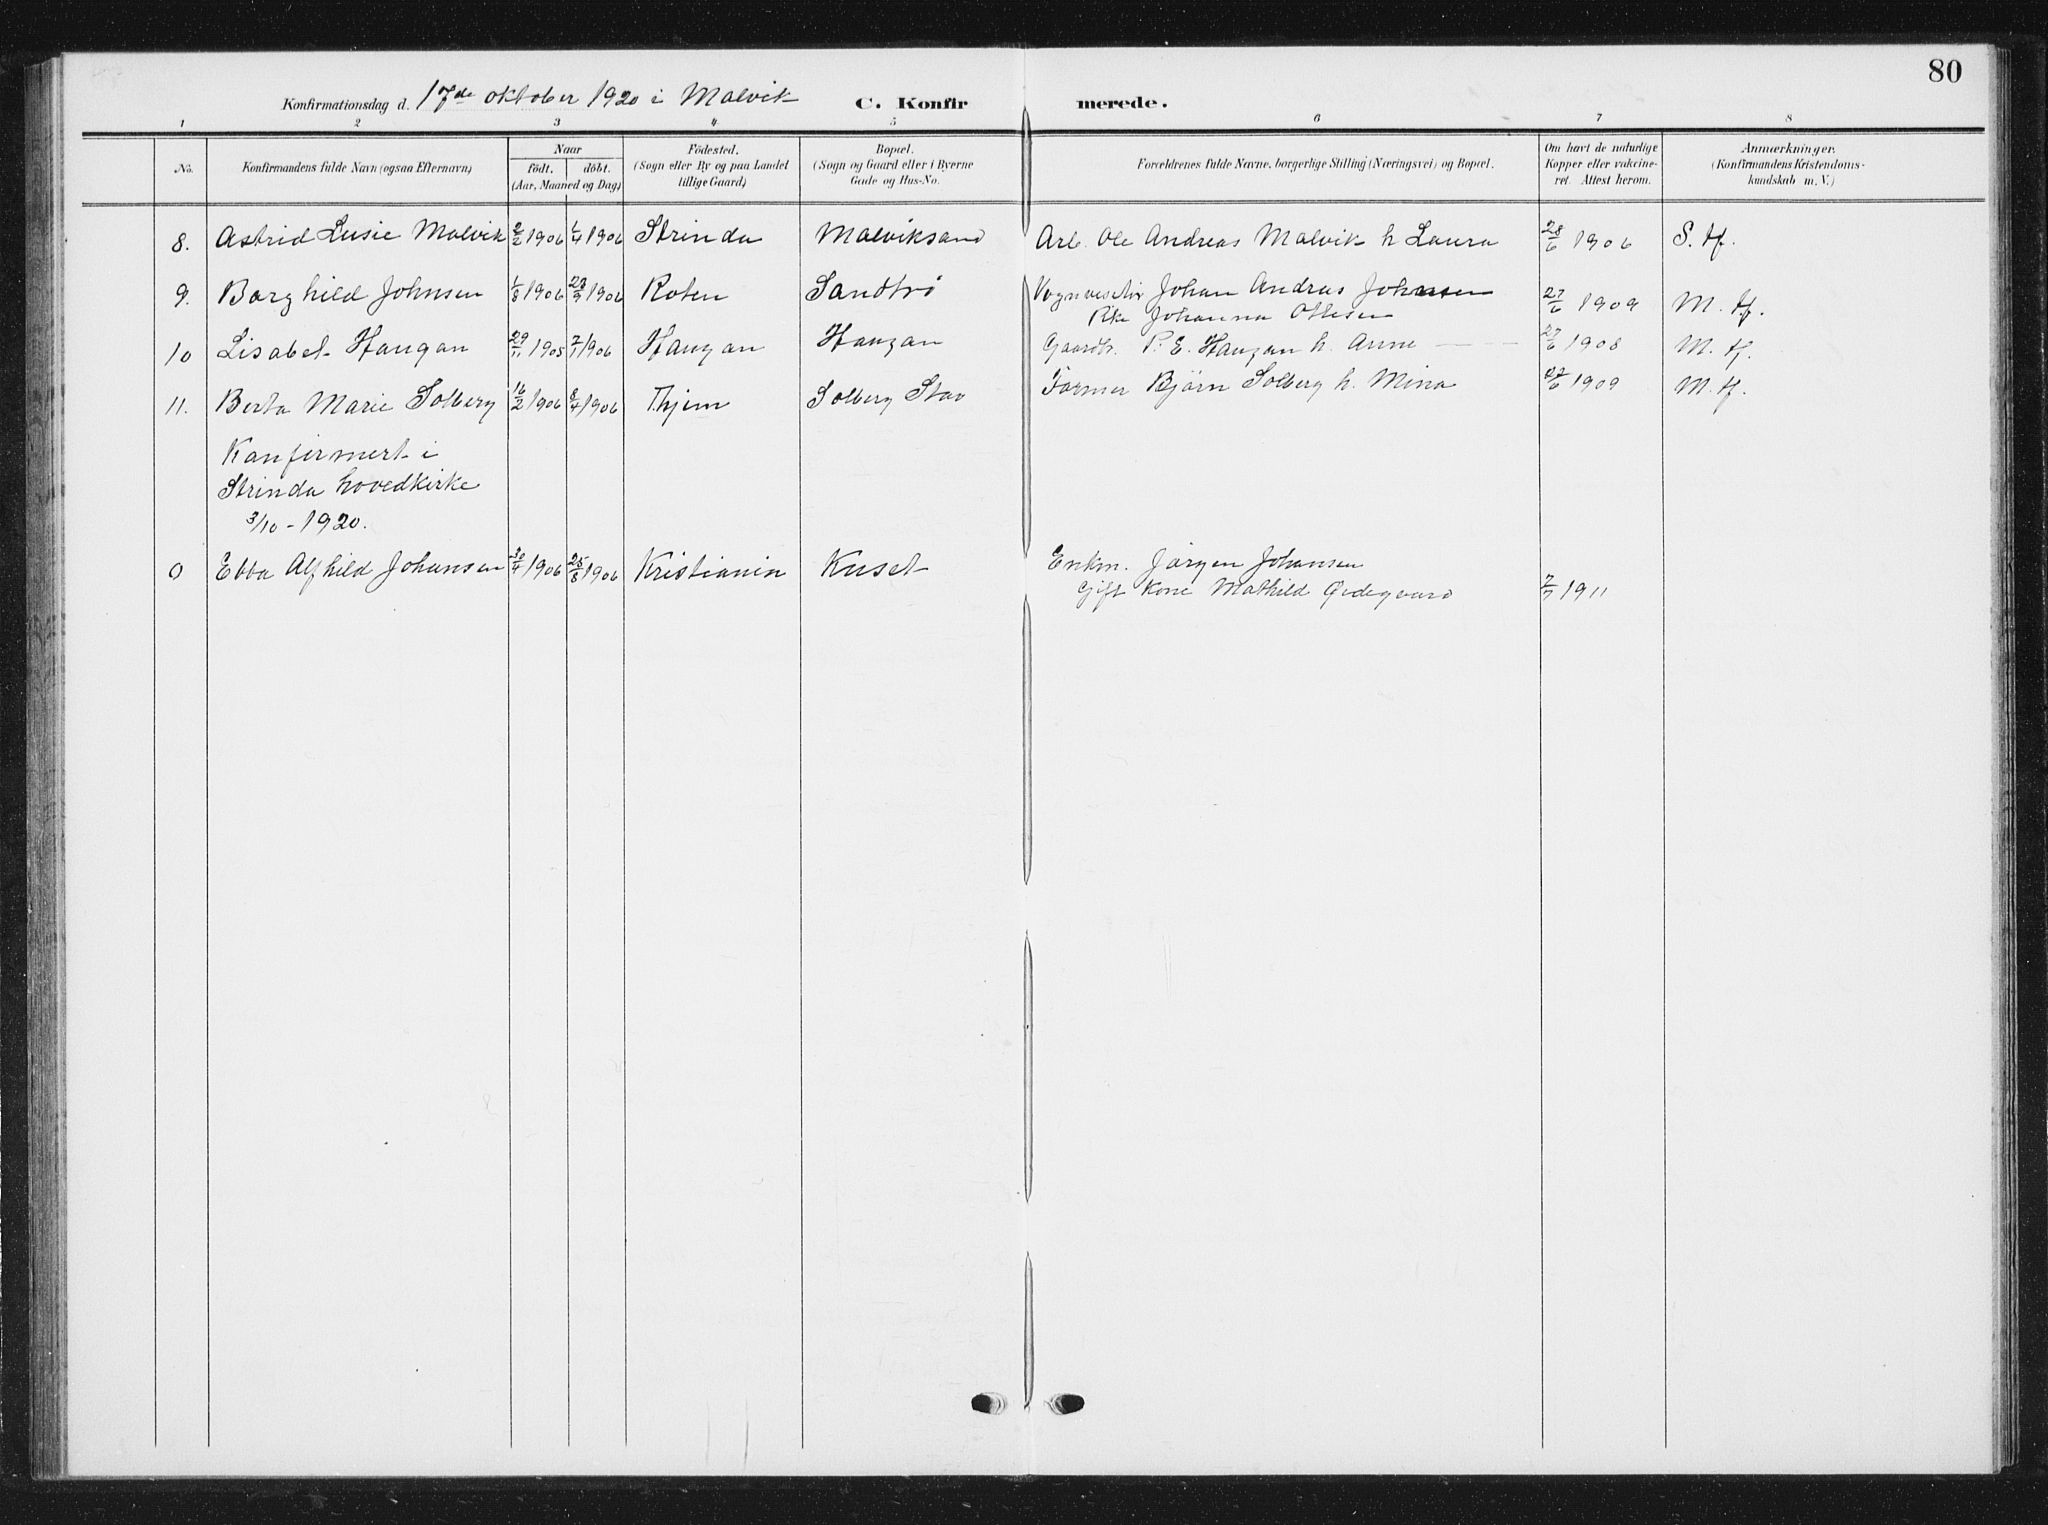 80
Konfirmationsdag d. 17de oktober 1920 i Malvik C. Konfirmerede.
1 2 3 4 5 6 7 8
No. Konfirmandens fulde Navn (ogsaa Efternavn) Naar födt. döbt. (Aar, Maaned og Dag) Födested. (Sogn eller By og paa Landet tillige Gaard) Bopæl. (Sogn og Gaard eller i Byerne Gade og Hus-No. Forældrenes fulde Navne, borgerlige Stilling (Næringsvei) og Bopæl. Om havt de naturlige Kopper eller vakcineret. Attest herom. Anmærkninger. (Konfirmandens Kristendomskundskab m. V.)
8. Astrid Lusie Malvik 2/2 1906 1/4 1906 Strinda Malviksand Arb. Ole Andreas Malvik h Laura 28/6 1906 S. tf.
9. Borghild Johnsen 1/8 1906 23/9 1906 Roten Sandtrö Johan Andras Johnsen 27/6 1909 M. tf.
Pike Johanna Ottesen
10 Lisabet Haugan 29/11 1905 7/1 1906 Haugan Haugan Gaardbr. P. E. Haugan h. Anne 27/6 1908 M. tf.
11. Berta Marie Solberg 16/2 1906 8/4 1906 Thjem Solberg Stav Farmer Björn Solberg h. Mina 27/6 1909 M. tf.
Konfirmert i
Strinda hovedkirke
3/10 - 1920.
0 Ebba Alfhild Johansen 30/4 1906 25/8 1906 Kristiania Kuset Enkm. Jörgen Johansen
Gift Kone Mathild Ödegaard 7/7 1911